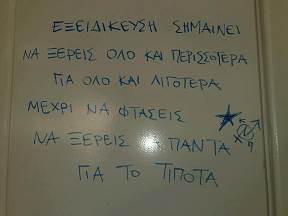 ΕΞΕΙΔΙΚΕΥΣΗ ΣΗΜΑΙΝΕΙ
ΝΑ ΞΕΡΕΙΣ ΟΛΟ ΚΑΙ ΠΕΡΙΣΣΟΤΕΡΑ
ΓΙΑ ΟΛΟ ΚΑΙ ΛΙΓΟΤΕΡΑ
ΜΕΧΡΙ ΝΑ ΦΤΑΣΕΙΣ
ΝΑ ΞΕΡΕΙΣ ΤΑ ΠΑΝΤΑ
ΓΙΑ ΤΟ ΤΙΠΟΤΑ